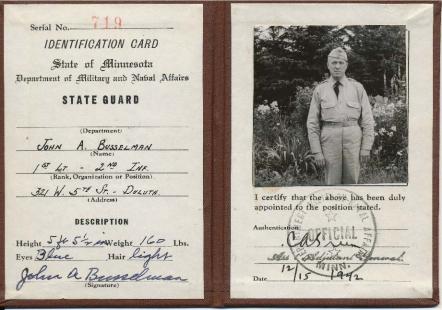 Serial No. 719
IDENTIFICATION CARD
State of Minnesota
Department of Military and Nabal Affairs
STATE GUARD
(Department)
JOHN A. BUSSELMAN
(Name)
1st Lt - 2nd Inf.
(Rank, Organization or Position)
321 W. 5th St. - Duluth.
(Address)
DESCRIPTION
Height 5 ft 5 1/2 in Weight 160 Lbs.
Eyes Blue Hair light
John A Busselman
(Signature)
I certify that the above has been duly
appointed to the position stated.
Authentication
OFFICIAL
Adjutant General.
MINN.
Date 12/15 1942